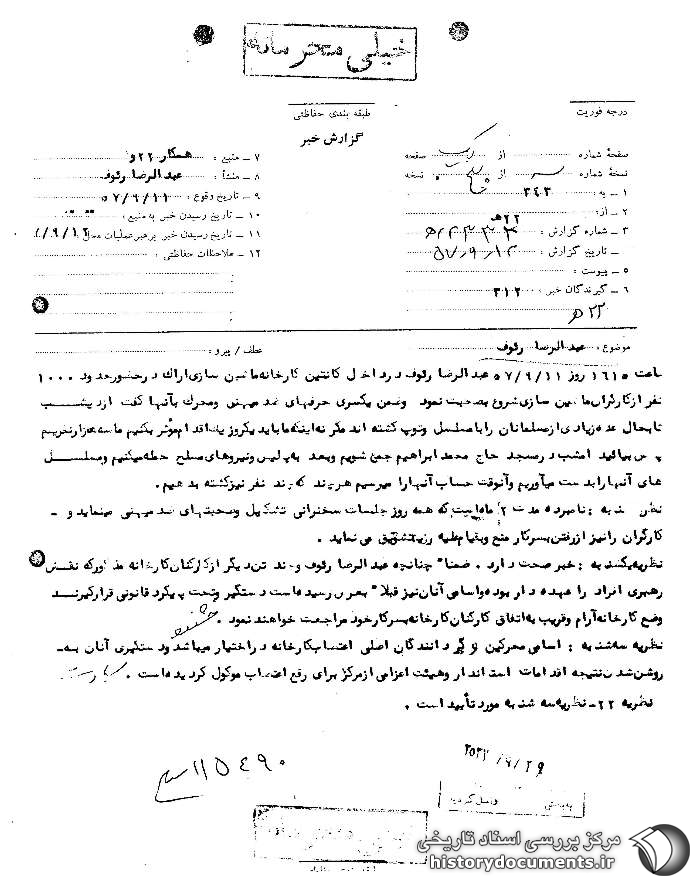 خیلی محرمانه
درجه فوریت
طبقه بندی حفاظتی
گزارش خبر
صفحهٔ شماره از یک صفحه
نسخهٔ شماره سه از نسخه
۱ ـ به : ۳۴۳
۲ ـ از: ۲۲ﻫ
۳ ـ شماره گزارش :
۴ ـ تاریخ گزارش :
۵ ـ پیوست :
۶ ـ گیرندگان خبر : ۳۱۲
۲۲ ﻫ
۷ ـ منبع : همکار ۲۲ و
۸ ـ منشأ : عبدالرضا رئوف
۹ ـ تاریخ وقوع : ۵۷/۹/۱۱
۱۰ ـ تاریخ رسیدن خبر به منبع :
۱۱ ـ تاریخ رسیدن خبر برهبر عملیات محل : ۹/۱۲
۱۲ ـ ملاحظات حفاظتی :
موضوع : عبدالرضا رئوف
عطف / پیرو :
ساعت ۱۶۱۵ روز ۵۷/۹/۱۱ عبدالرضا رئوف در داخل کانتین کارخانه ماشین سازی اراک در حضور حدود ۱۰۰۰
نفر از کارگران ماشین سازی شروع بصحبت نمود و ضمن یکسری حرفهای ضد میهنی و محرک بآنها گفت از دیشب
تا بحال عده زیادی از مسلمانان را با مسلسل و توپ کشته اند مگر نه اینکه ما باید یکروز یک اقدام مؤثر بکنیم ما سه هزار نفریم
پس بیائید امشب در مسجد حاج محمد ابراهیم جمع شویم و بعد به پلیس و نیروهای مسلح حمله میکنیم و مسلسل
های آنها را بدست میآوریم و آنوقت حساب آنها را میرسیم هر چند که چند نفر نیز کشته بدهیم .
نظریه شنبه : نامبرده مدت ۲ ماه است که همه روز جلسات سخنرانی تشکیل و صحبتهای ضد میهنی مینماید و ـ
کارگران را نیز از رفتن بسر کار منع و بقیام علیه رژیم تشویق می نماید .
نظریه یکشنبه : خبر صحت دارد . ضمناً چنانچه عبدالرضا رئوف و چند تن دیگر از کارکنان کارخانه مذکور که نقش
رهبری افراد را عهده دار بوده و اسامی آنان نیز قبلاً بعرض رسیده است دستگیر و تحت پیگرد قانونی قرار گیرند
وضع کارخانه آرام و قریب به اتفاق کارکنان کارخانه بسر کار خود مراجعت خواهند نمود .
نظریه سه شنبه : اسامی محرکین و گردانندگان اصلی اعتصاب کارخانه در اختیار میباشد و دستگیری آنان به ـ
روشن شدن نتیجه اقدامات استاندار و هیئت اعزامی از مرکز برای رفع اعتصاب موکول گردیده است .
نظریه ۲۲ ـ نظریه سه شنبه مورد تأیید است .
۱۱۵۴۹۰
مرکز بررسی اسناد تاریخی
historydocuments.ir